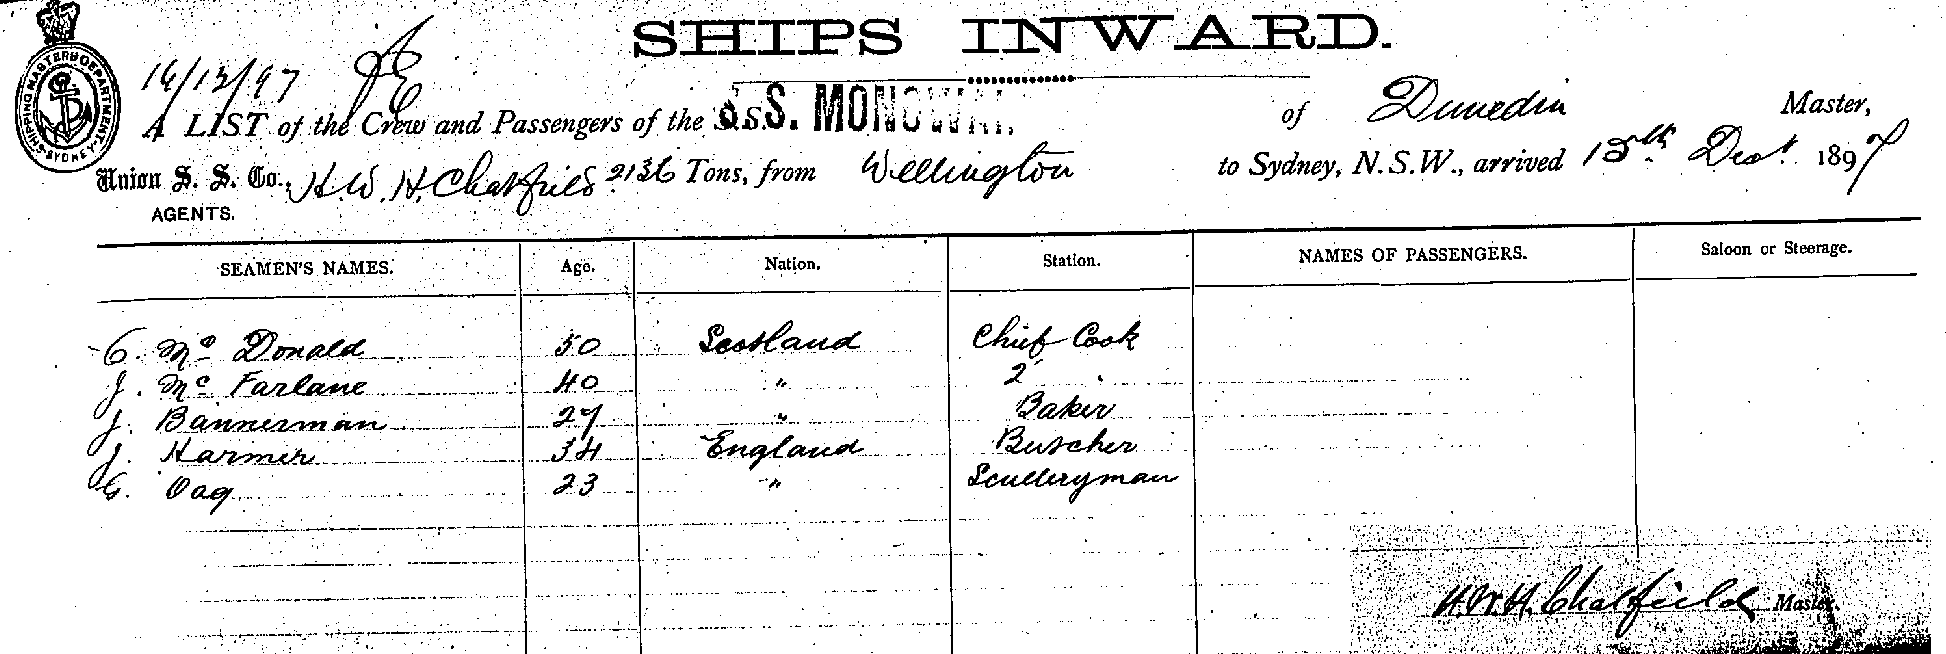 SHIPS INWARD.
SHIPPING MASTER'S DEPARTMENT SYDNEY
A LIST of the Crew and Passengers of the S.S. S.S. MONOWAI. of Dunedin Master,
Union S. S. Co., H. W. H. Chatfield 2136 Tons, from Wellington to Sydney, N.S.W., arrived 15th Dect. 1897
AGENTS.
SEAMEN'S NAMES. Age. Nation. Station. NAMES OF PASSENGERS. Saloon or Steerage.
C. Mc Donald 50 Scotland Chief Cook
J. Mc Farlane 40 " 2 "
J. Bannerman 27 " Baker
J. Harmer 34 England Butcher
C. Oag 23 " Sculleryman
H.W.H. Chatfield Master.